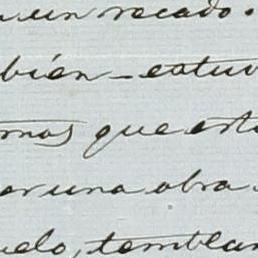 un recado.
bién_estuv
mos que est
er una obra
uelo, temblan